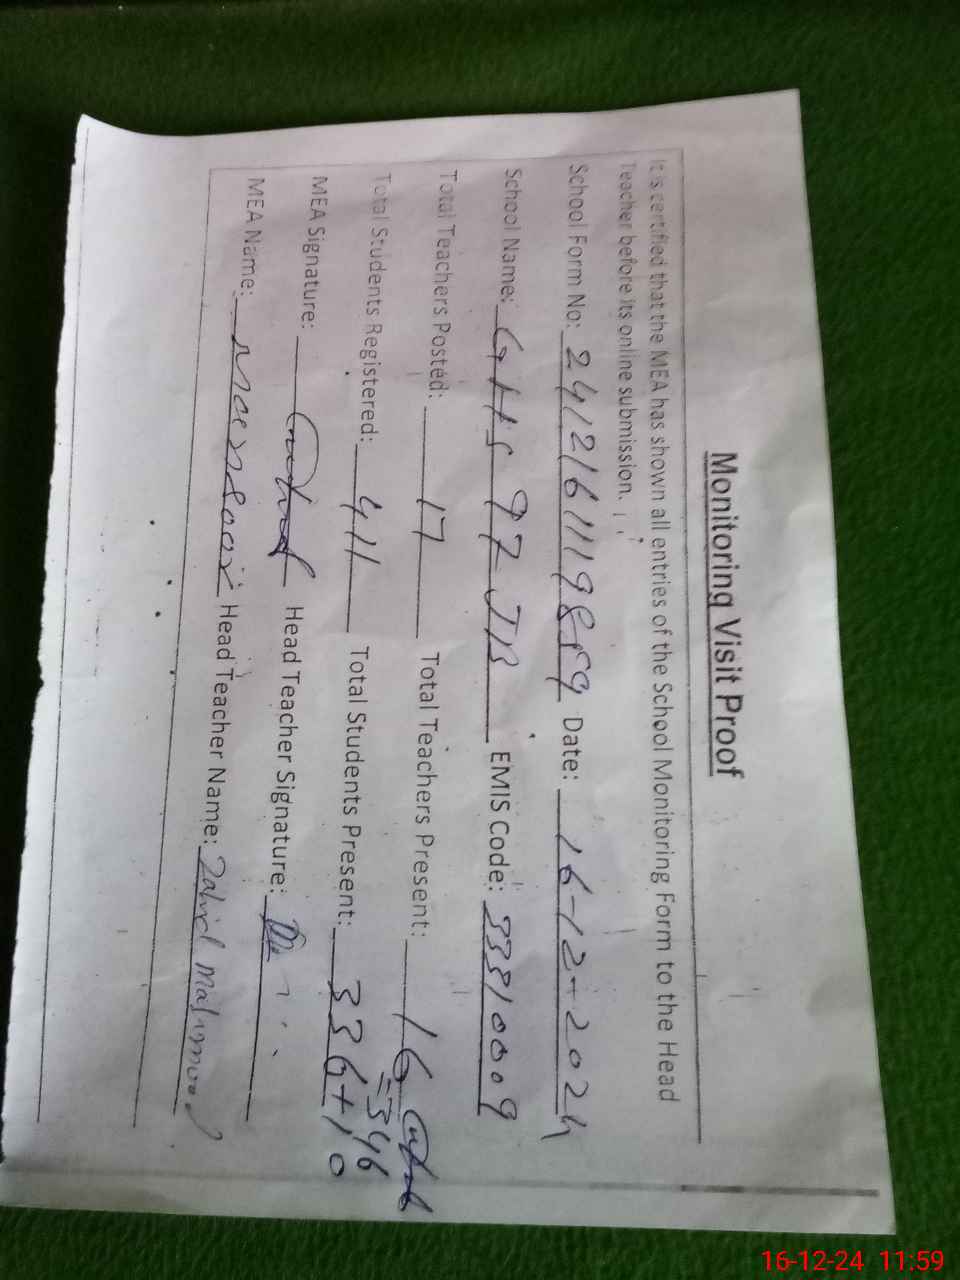 Monitoring Visit Proof
It is certified that the MEA has shown all entries of the School Monitoring Form to the Head
Teacher before its online submission.
School Form No: 241216111989 Date: 16-12-2024
School Name: GHS 97 JB EMIS Code: 33310009
Total Teachers Posted: 17 Total Teachers Present: 16
Total Students Registered: 411 Total Students Present: 336+10
=346
MEA Signature: Head Teacher Signature:
MEA Name: Head Teacher Name: Zahid Mahmood
16-12-24 11:59